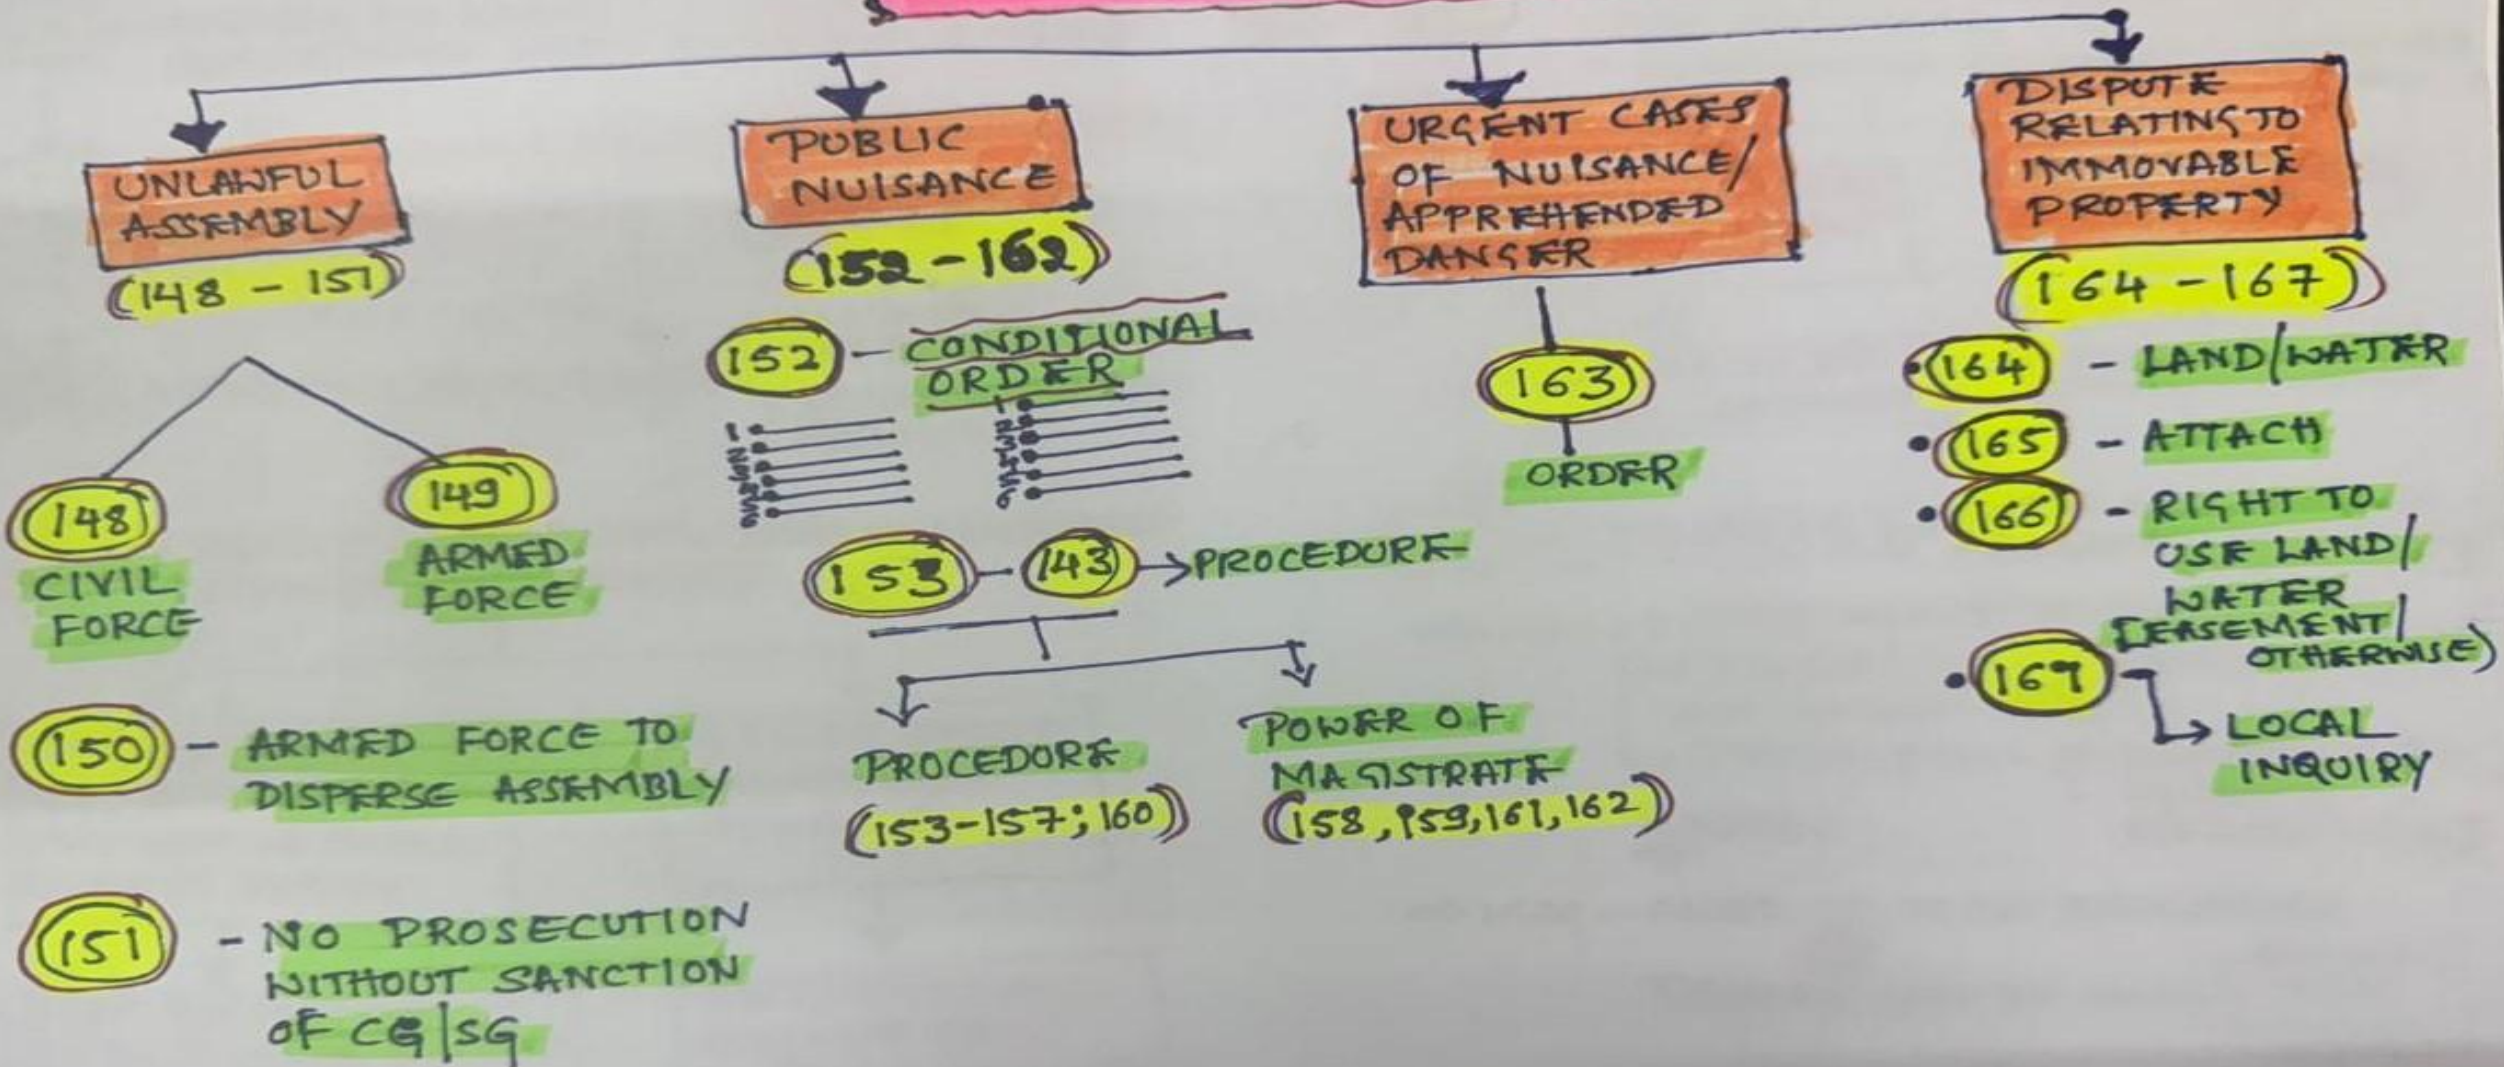 UNLAWFUL
ASSEMBLY
(148 - 151)
148
CIVIL
FORCE
149
ARMED
FORCE
150 - ARMED FORCE TO
DISPERSE ASSEMBLY
151 - NO PROSECUTION
WITHOUT SANCTION
OF CG/SG
PUBLIC
NUISANCE
(152 - 162)
152 - CONDITIONAL
ORDER
1
2
3
4
5
6
1
2
3
4
5
6
153 - 143 → PROCEDURE
PROCEDURE
(153-157; 160)
POWER OF
MAGISTRATE
(158, 159, 161, 162)
URGENT CASES
OF NUISANCE/
APPREHENDED
DANGER
163
ORDER
DISPUTE
RELATING TO
IMMOVABLE
PROPERTY
(164 - 167)
164 - LAND/WATER
165 - ATTACH
166 - RIGHT TO
USE LAND/
WATER
[EASEMENT/
OTHERWISE)
167
LOCAL
INQUIRY